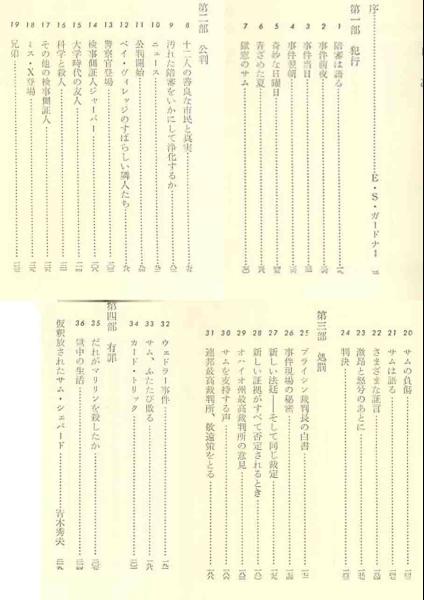 序……E・S・ガードナー
第一部 犯行
1 陪審は語る
2 事件前夜
3 事件当日
4 事件翌朝
5 奇妙な日曜日
6 青ざめた夏
7 獄窓のサム
第二部 公判
8 十二人の善良な市民と真実
9 汚れた陪審をいかにして浄化するか
10 ニュース
11 公判開始
12 ベイ・ヴィレッジのすばらしい隣人たち
13 警察官登場
14 検事側証人シャーバー
15 大学時代の友人
16 科学と殺人
17 その他の検事側証人
18 ミス・X登場
19 兄弟
20 サムの負傷
21 サムは語る
22 さまざまな証言
23 激昂と怒号のあとに
24 判決
第三部 処罰
25 ブライシン裁判長の白書
26 事件現場の秘密
27 新しい法廷――そして同じ裁定
28 新しい証拠がすべて否定されるとき
29 オハイオ州最高裁判所の意見
30 サムを支持する声
31 連邦最高裁判所、敬遠策をとる
第四部 有罪
32 ウェドラー事件
33 サム、ふたたび敗る
34 カード・トリック
35 だれがマリリンを殺したか
36 獄中の生活
仮釈放されたサム・シェパード……青木秀夫